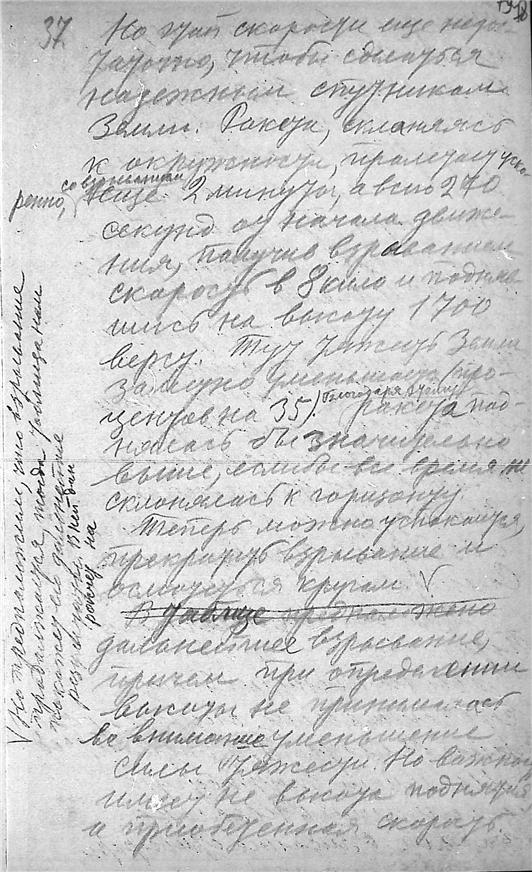 37
Но этой скорости еще недо-
статочно, чтобы сделаться
надежным спутником
Земли. Ракета, склоняясь
к окружности, пролетает уско-
ренно, со взрыванием еще 2 минуты, а всего 270
секунд от начала движе-
ния, получив взрыванием
скорость в 8 кило и подняв-
шись на высоту 1700
верст. Тут тяжесть Земли
заметно уменьшается (про-
центов на 35). Благодаря этому ракета под-
нялась бы значительно
выше, если бы все время не
склонялась к горизонту
Теперь можно успокоиться,
прекратить взрывание и
осмотреться кругом. √
В таблице предположено
дальнейшее взрывание,
причем при определении
высоты не принималось
во внимание уменьшение
силы тяжести. Но важна
не высота поднятия
а приобретенная скорость.
√ Но предположим, что взрывание
продолжается, тогда таблица нам
покажет его дальнейшие
результаты. В ней дан